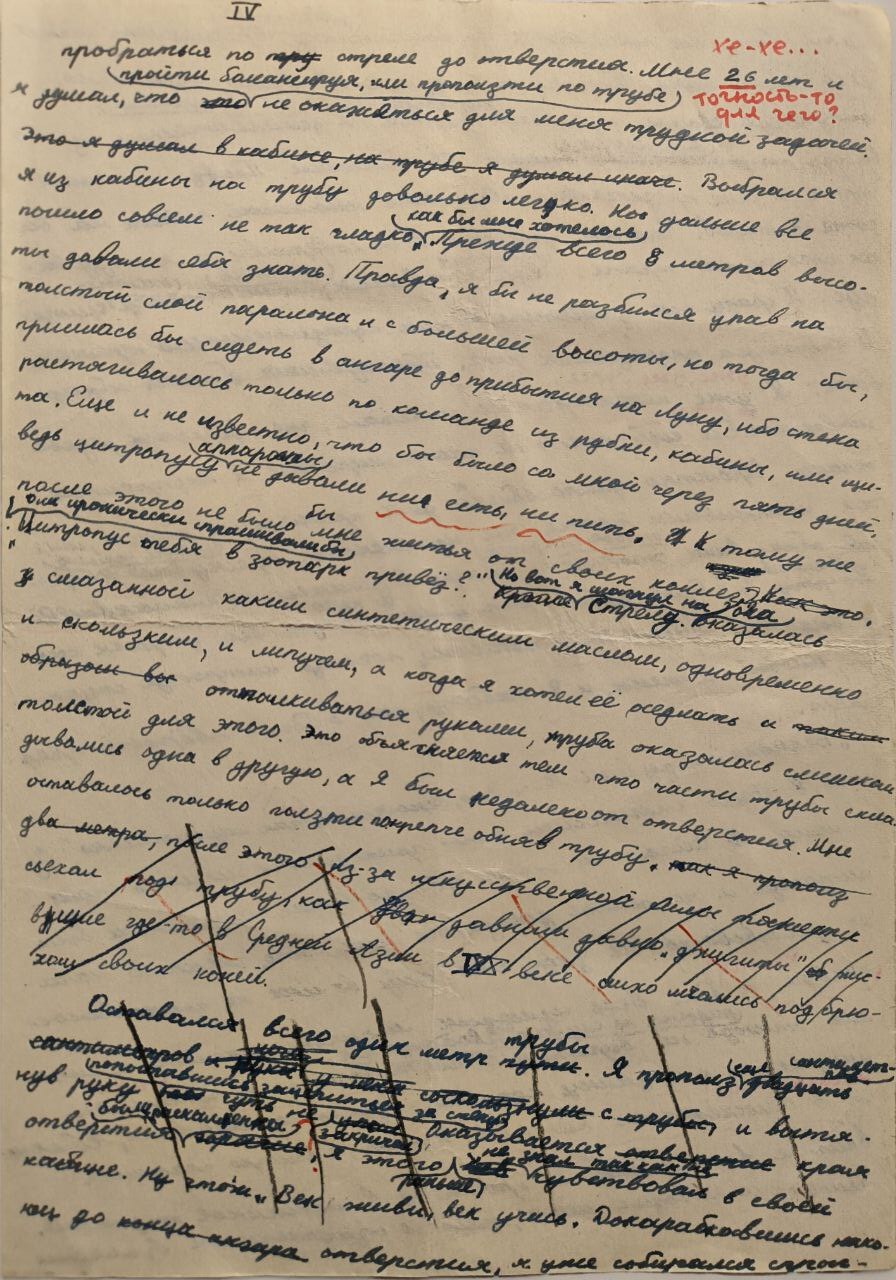 IV
хе-хе...
пробраться по тру стреле до отверстия. Мне 26 лет и
точность-то
для чего?
(пройти балансируя, или проползти по трубе)
я думал, что это не окажаться для меня трудной задачей.
Это я думал в кабине, на трубе я думал иначе. Выбрался
я из кабины на трубу довольно легко. Но дальше все
как бы мне хотелось
пошло совсем не так гладко, Прежде всего 8 метров высо-
ты давали себя знать. Правда, я бы не разбился упав на
толстый слой паралона и с большей высоты, но тогда бы,
пришлась бы сидеть в ангаре до прибытия на Луну, ибо стена
растягивалась только по команде из рубки, кабины, или ци-
та. Еще и не известно, что бы было со мной через пять дней,
аппараты
ведь цитропу не давали ни есть, ни пить. К тому же
после этого не было бы мне житья от своих коллег.
Они иронически спрашивали бы
"Цитропус тебя в зоопарк привёз?"
Но вот я шагнул на
Стрелу. Она оказалась
смазанной каким синтетическим маслом, одновременно
и скользким, и липучем, а когда я хотел её оседлать и таким
образом бы отталкиваться руками, труба оказалась слишком
толстой для этого. Это объясняется тем что части трубы скла
дывались одна в другую, а я был недалеко от отверстия. Мне
оставалось только ползти покрепче обняв трубу. так я прополз
два метра, после этого из-за искусственной силы тяжести
съехал под трубу, как давным давно "джигиты"
вшие где-то в Средней Азии в веке лихо мчались под брю-
хащ своих коней.
Оставался всего один метр трубы пути. Я прополз
сантиметров и руки у меня соскользнули с трубы, и вытя-
попытавшись зацепиться за стенку
нув руку оказывается отверстие края
были раскалены закричал не знал так как не
отверстия я этого чувствовал в своей
раньше
кабине. Ну что ж, Век живи, век учись. Докарабкавшись нако-
нец до конца ангара отверстия, я уже собирался спрыг-